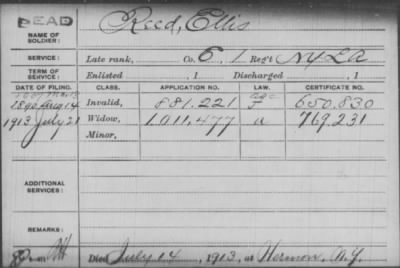 DEAD
NAME OF SOLDIER: Reed, Ellis
SERVICE: Late rank, Co. 6, 1 Reg't N.Y.L.A.
TERM OF SERVICE: Enlisted , 1 Discharged , 1
DATE OF FILING. CLASS. APPLICATION NO. LAW. CERTIFICATE NO.
1890 Aug 14 Invalid, 881.221 F 650.830
1913 July 21 Widow, 1.011.477 a 769.231
Minor,
ADDITIONAL SERVICES:
REMARKS:
Died July 14, 1913, at Hermon, N.Y.